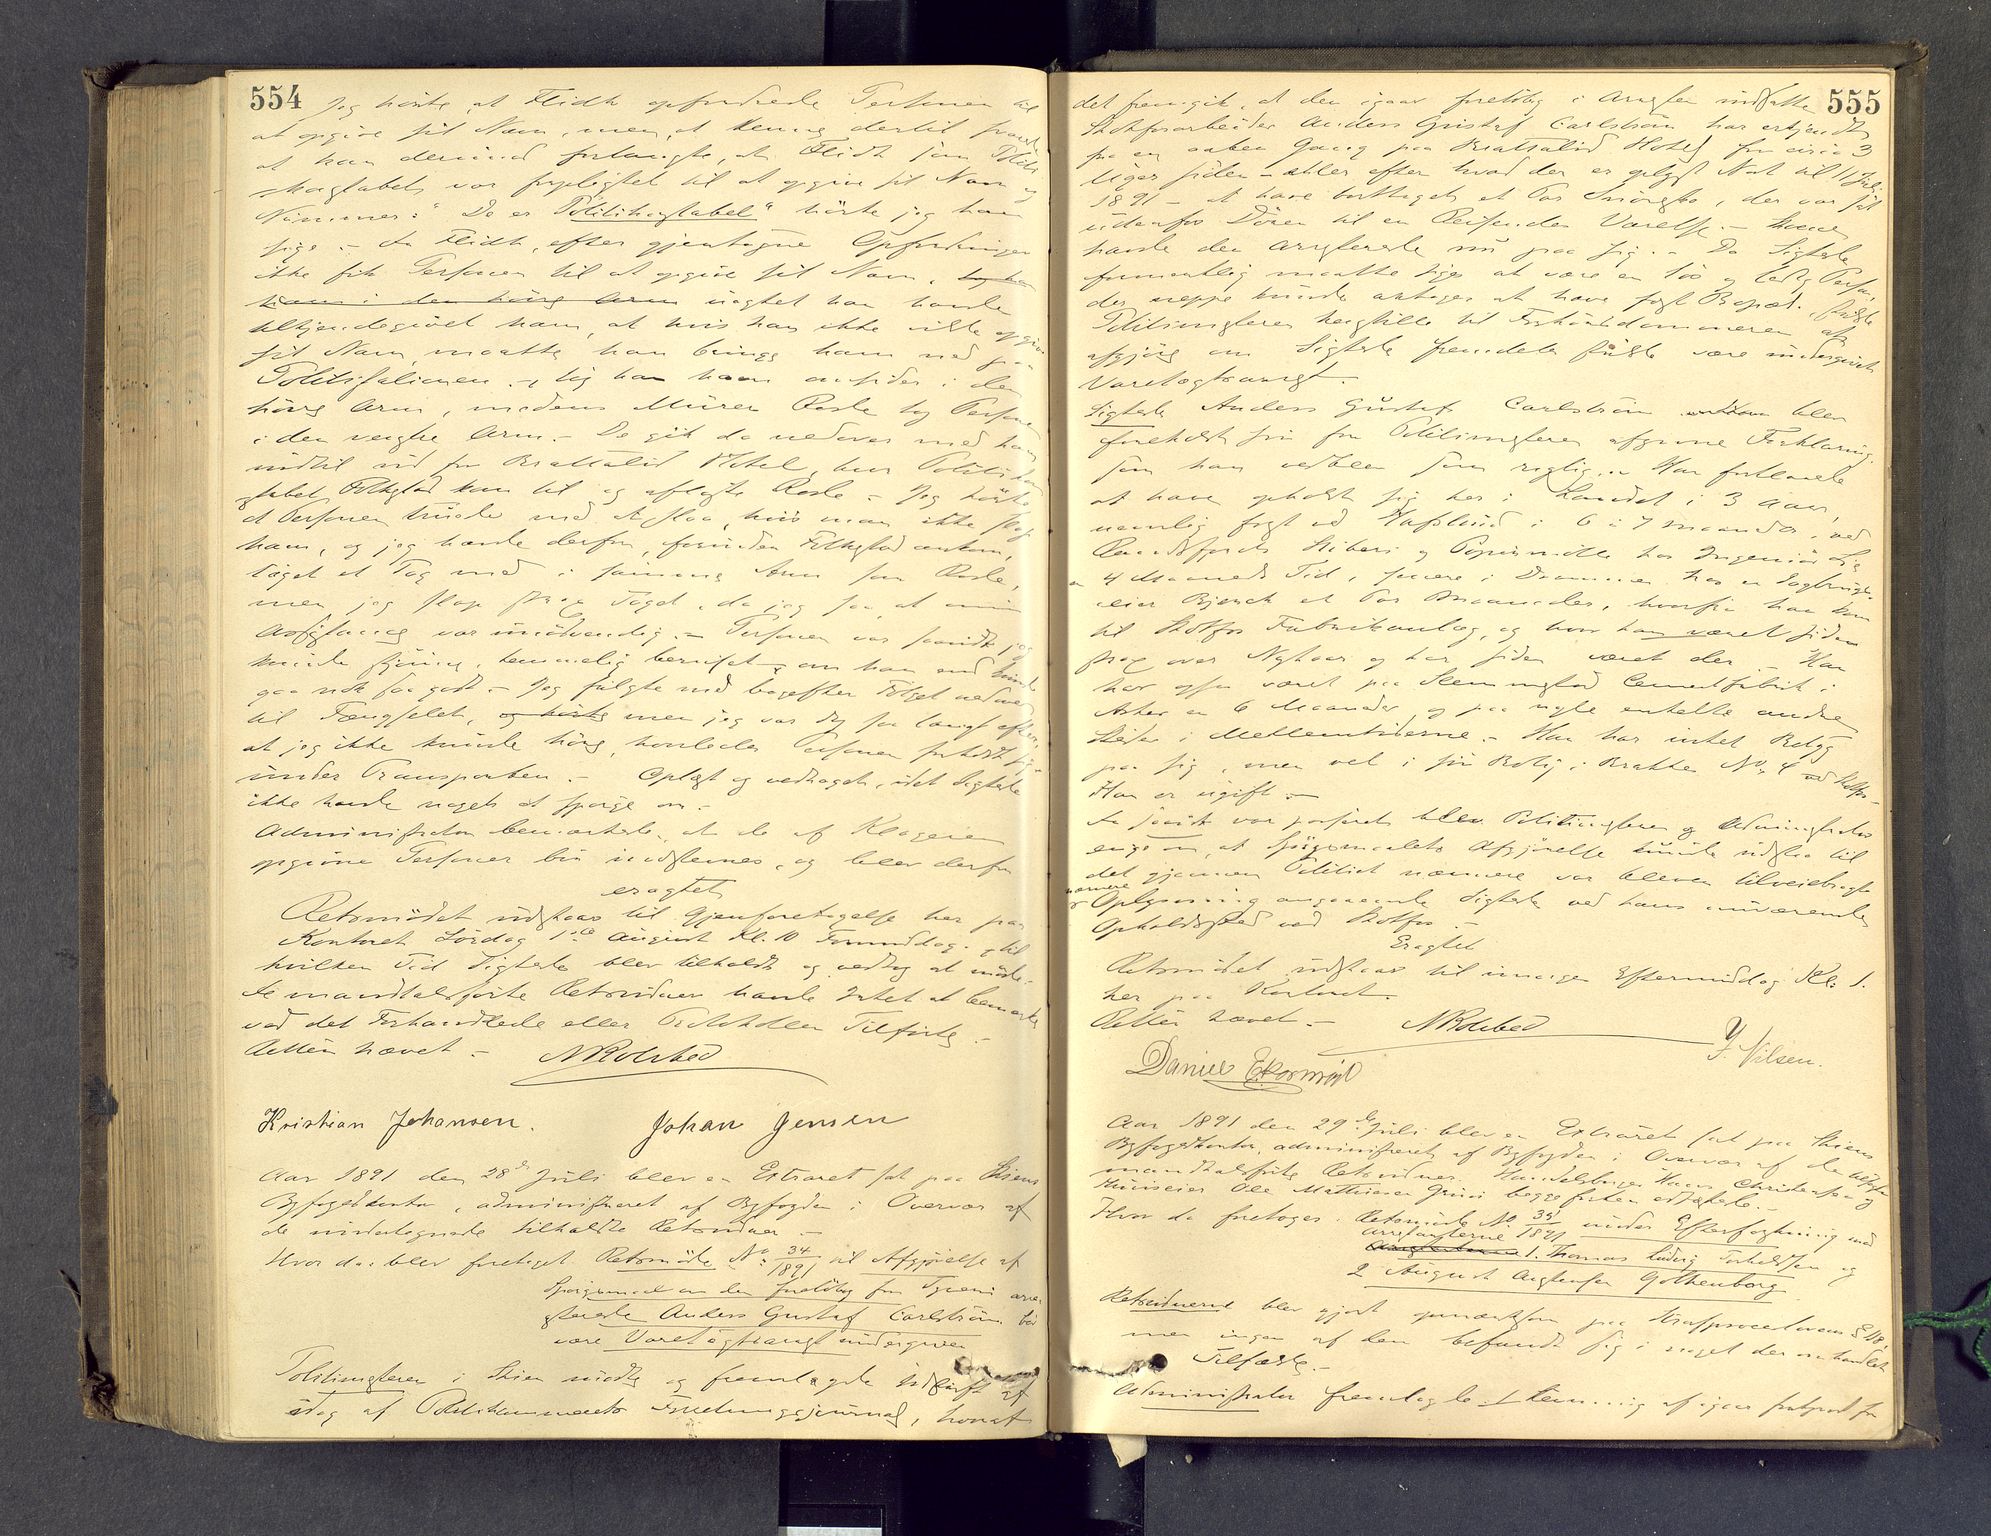 554
Jeg hørte, at Flidh opfordrede Personen til
at opgive sit Navn, men, at denne dertil svarede
at han derimod forlangte, at Flidh som Politi
Magtabels var forpligtet til at opgive sit Navn og
Nummer: "De er Politikonstabel" hørte jeg ham
sige. - Da Flidh, efter gjentagne Opfordringer
ikke fik Personen til at opgive sit Navn, tog han
ham i den høire Arm uagtet han havde
tilkjendegivet ham, at hvis han ikke vilde opgive
sit Navn, maatte han bringe ham ned paa
Politistationen. - tog han ham omsider i den
høire Arm, medens Murer Rosle tog Personen
i den venstre Arm. - De gik da nedover med ham
indtil ud for Brattalid Hotel, hvor Politikon-
stabel Folkestad kom til og afløste Rosle. - Jeg hørte
at Personen truede med at slaa, hvis man ikke slap
ham, og jeg havde derfor, forinden Folkestad ankom,
taget et Tag med i samme Arm som Rosle,
men jeg slap strax Taget, da jeg saa, at min
Assistance var unødvendig. - Personen var saavidt jeg
kunde skjønne, temmelig beruset, om han end kunde
gaa nok saa godt. - Jeg fulgte med bagefter Følget nedover
til Fængselet, og hørte men jeg var dog saa langt efter,
at jeg ikke kunde høre, hvorledes Personen forholdt sig
under Transporten. - Oplæst og vedtaget, idet Sigtede
ikke havde noget at spørge om. -
Administrator bemærkede, at de af Klageren
opgivne Personer bør indstevnes, og blev derfor
eragtet
Retsmødet udstaar til Gjenforetagelse her paa
Kontoret Lørdag 1ste August Kl. 10 Formiddag, til
hvilken Tid Sigtede blev tilholdt og vedtog at møde. -
De mandtalsførte Retsvidner havde Intet at bemærke
ved det Forhandlede eller Protokollens Tilførte. -
Retten hævet. - NRolsted
Kristian Johansen. Johan Jensen
Aar 1891 den 28de Juli blev en Extraret sat paa Skiens
Byfogedkontor, administreret af Byfogden i Overvær af
de undertegnede tilkaldte Retsvidner. -
Hvor da: blev foretaget Retsmøde No: 34/1891 til Afgjørelse af
Spørgsmaal om den foreløbig for Tyveri arre-
sterede Anders Gustaf Carlström bør
være Varetægtsarrest undergiven
Politimesteren i Skien mødte og fremlagde Udskrift af
idag af Politikammerets Anmeldelsesjournal, hvoraf
555
det fremgik, at den igaar foreløbig i Arresten indsatte
Skotfosarbeider Anders Gustaf Carlström har erkjendt
fra en aaben Gang paa Brattalid Hotel for circa 3
Uger siden - eller efter hvad der er oplyst Nat til 11 Juli
1891 - at have borttaget et Par Snøresko, der var sat
udenfor Døren til en Reisendes Værelse. - Skoene
havde den arresterede nu paa sig. - Da Sigtede
formentlig maatte siges at være en løs og ledig Person,
der neppe kunde antages at have fast Bopæl, skulde
Politimesteren henstille til Forhørsdommeren at
afgjøre om Sigtede fremdeles skulde være undergivet
Varetægtsarrest. -
Sigtede Anders Gustaf Carlström blev
foreholdt sin for Politimesteren afgivne Forklaring
som han vedblev som rigtig. - Han forklarede
at have opholdt sig her i Landet i 3 Aar,
nemlig først ved Hafslund i 6 à 7 Maaneder, ved
Randsfjords Sliberi og Papirmølle hos Ingeniør Lie
en 4 Maaneds Tid, senere i Drammen hos en Sagbrugs-
eier Bjerck et Par Maaneder, hvorfra han kom
til Skotfos Fabrikanlæg, og hvor han været siden
strax over Nytaar og har siden været der. - Han
har ogsaa været paa Slemmestad Cementfabrik i
Asker en 6 Maaneder og paa nogle enkelte andre
Steder i Mellemtiderne. - Han har intet Bevis
paa sig, men vel i sin Bolig i Brakke No 4 ved Skotfos. -
Han er ugift. -
Da Sigtede var passeret blev Politimesteren og Administrator
enige om, at Spørgsmaalets Afgjørelse kunde udstaa til
det gjennem Politiet nærmere var bleven tilveiebragt
nærmere Oplysning angaaende Sigtede ved hans nuværende
Opholdssted ved Skotfos. -
Eragtet
Retsmødet udstaar til imorgen Eftermiddag Kl. 1.
her paa Kontoret. -
Retten hævet. - NRolsted Y. Nilsen.
Daniel Ekornrød
Aar 1891 den 29de Juli blev en Extraret sat paa Skiens
Byfogedkontor, administreret af Byfogden i Overvær af de tilkaldte
mandtalsførte Retsvidner Handelsborger Hans Christensen og
Huseier Ole Mathiesen Grini begge forhen edfæstede. -
Hvor da foretoges: Retsmøde No 35/1891 under Efterforskning mod
Arrestanterne
1. Thomas Ludvig Torkelsen og
2 August Axelsen Gothenborg
Retsvidnerne blev gjort opmærksom paa Straffeproceslovens § 118,
men ingen af dem befandt sig i noget der omhandlet
Tilfælde. -
Administrator fremlagde 1 Skrivning af igaar fra